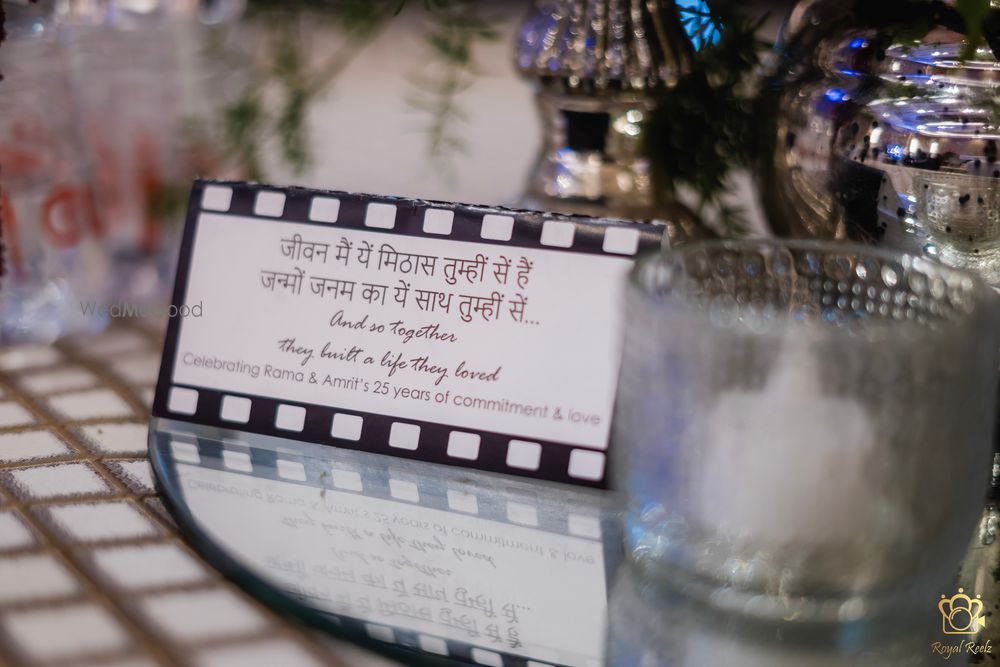 जीवन मैं यें मिठास तुम्हीं सें हैं
जन्मों जनम का यें साथ तुम्हीं सें...
And so together
they built a life they loved
Celebrating Rama & Amrit's 25 years of commitment & love
WedMeGood
Royal Reelz